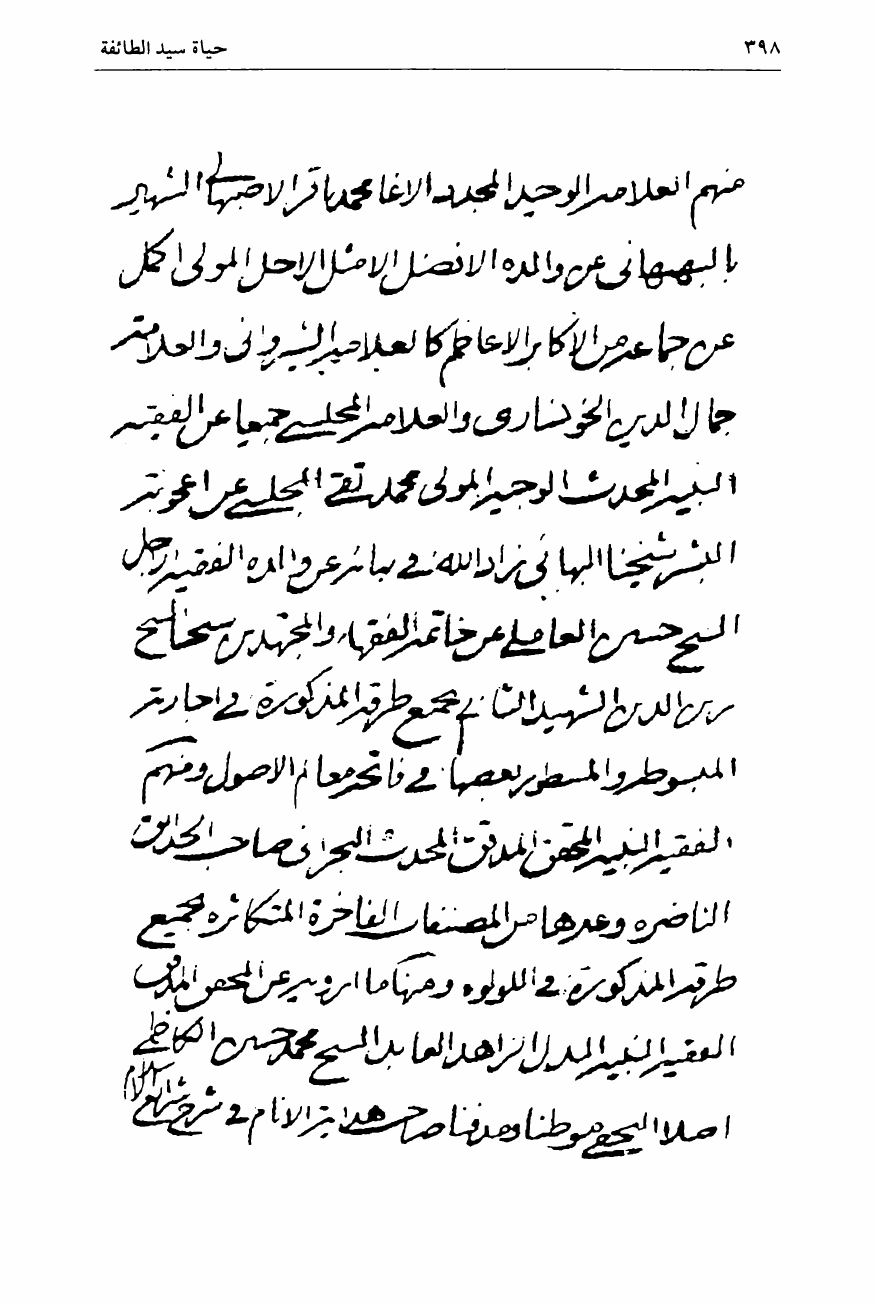 ٣٩٨ حياة سيد الطائفة
منهم العلامه الوحيد المجدد الاغا محمد باقر الاصبهاني الشهير
بالبهبهاني عن والده الافضل الامثل الاجل المولى اكمل
عن جماعه من الاكابر الاعاظم كالعلامه الشيرواني والعلامه
جمال الدين الخونساري والعلامه المجلسي جميعا عن الفقيه
النبيه المحدث الوجيه المولى محمد تقي المجلسي عن اعجوبه
البشر شيخنا البهائي زاد الله في بهائه عن والده الفقيه
الشيخ حسين العاملي عن خاتمه الفقهاء والمجتهدين شيخنا الشيخ
زين الدين الشهيد الثاني بجميع طرقه المذكورة في اجازته
المبسوطه والمسطور بعضها في فاتحه معالم الاصول ومنهم
الفقيه النبيه المحقق المدقق المحدث البحراني صاحب الحدائق
الناضره وغيرها من المصنفات الفاخرة المتكاثره بجميع
طرقه المذكورة في اللولوه ومنها ما ارويه عن المحقق المدقق
الفقيه النبيه الزاهد العابد الشيخ محمد حسين الكاظمي
اصلا النجفي موطنا ومدفنا صاحب هداية الانام في شرح شرايع الاسلام